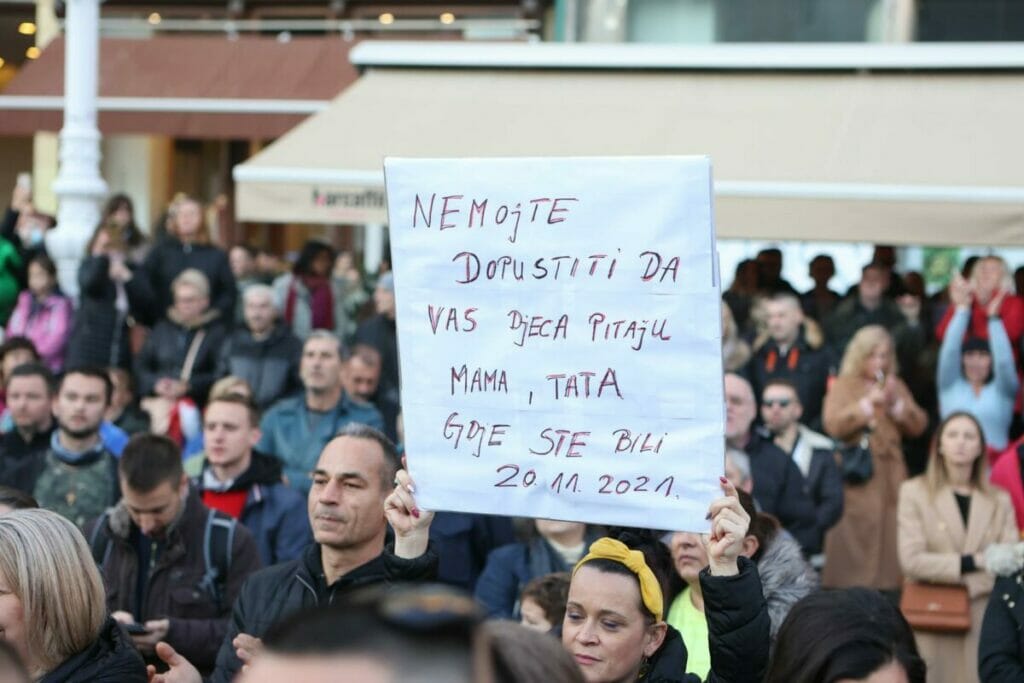 NEMOjTE
DOPUSTITI DA
VAS DjECA PITAjU
MAMA, TATA
GDJE STE BILI
20.11.2021.